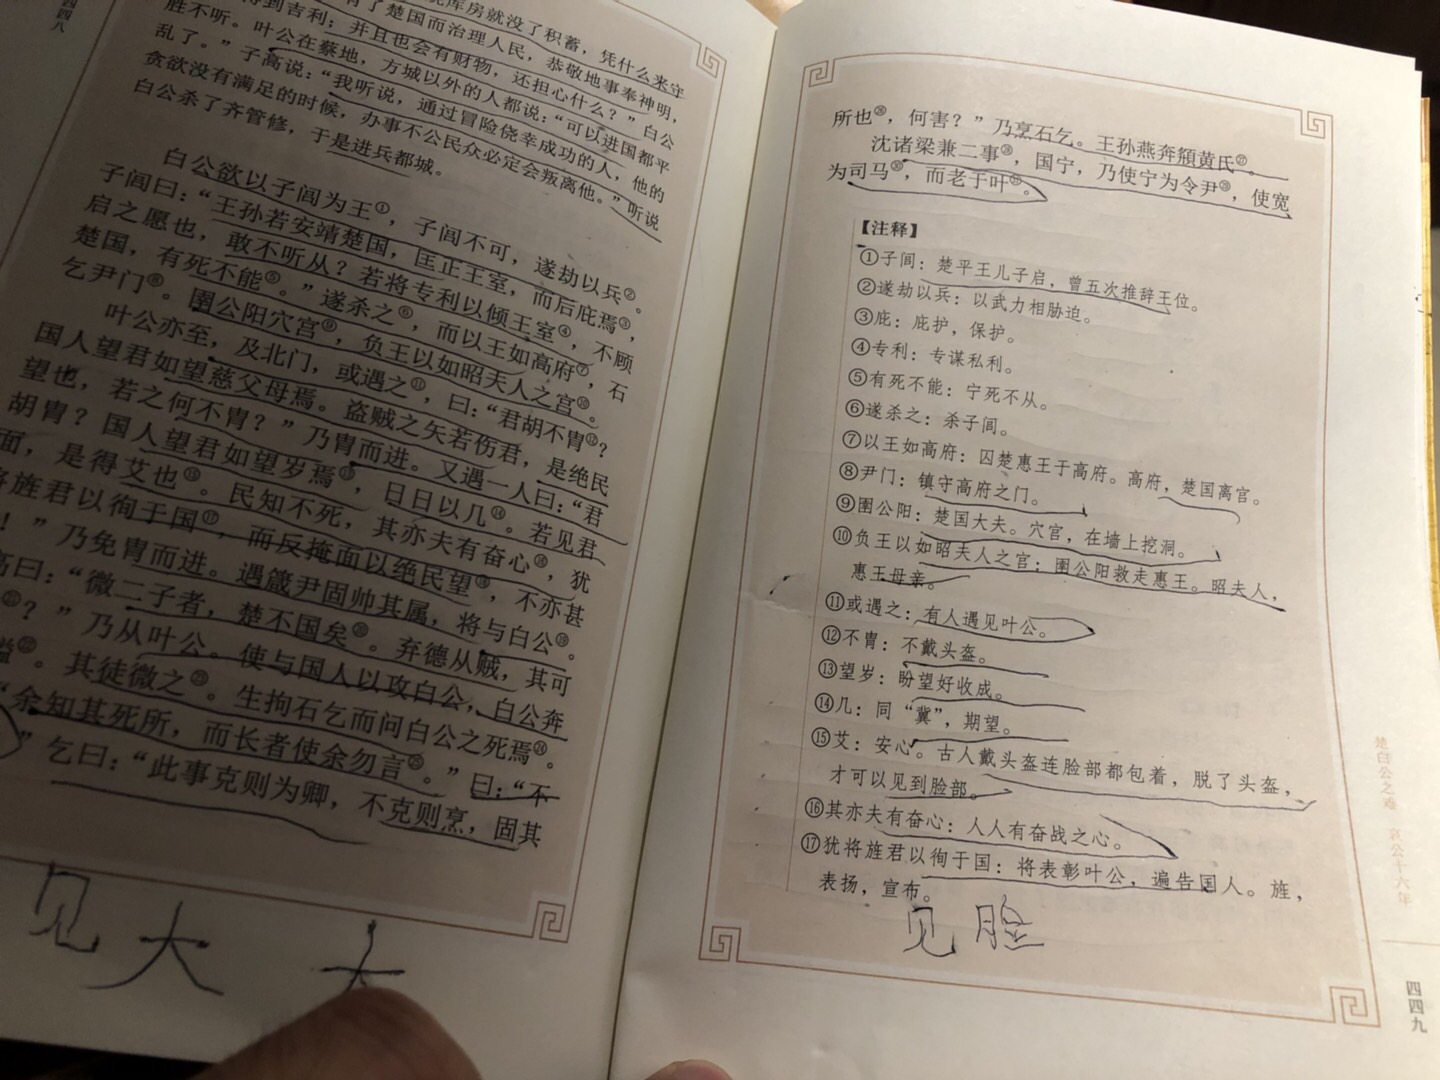 四四八
库房就没了积蓄，凭什么来守
得到吉利；并且也会有财物，还担心什么？”白公
胜不听。叶公在蔡地，方城以外的人都说：“可以进国都平
乱了。”子高说：“我听说，通过冒险侥幸成功的人，他的
贪欲没有满足的时候，办事不公民众必定会叛离他。”听说
白公杀了齐管修，于是进兵都城。
白公欲以子闾为王①，子闾不可，遂劫以兵②。
子闾曰：“王孙若安靖楚国，匡正王室，而后庇焉③，
启之愿也，敢不听从？若将专利以倾王室④，不顾
楚国，有死不能⑤。”遂杀之⑥，而以王如高府⑦，石
乞尹门⑧。圉公阳穴宫⑨，负王以如昭夫人之宫⑩。
叶公亦至，及北门，或遇之⑪，曰：“君胡不胄⑫？
国人望君如望慈父母焉。盗贼之矢若伤君，是绝民
望也，若之何不胄？”乃胄而进。又遇一人曰：“君
胡胄？国人望君如望岁焉⑬，日日以几⑭。若见君
面，是得艾也⑮。民知不死，其亦夫有奋心⑯，犹
将旌君以徇于国⑰，而反掩面以绝民望⑱，不亦甚
！”乃免胄而进。遇箴尹固帅其属，将与白公⑲。
高曰：“微二子者，楚不国矣⑳。弃德从贼，其可
？”乃从叶公。使与国人以攻白公，白公奔
缢㉒。其徒微之㉓。生拘石乞而问白公之死焉㉔。
“余知其死所，而长者使余勿言㉕。”曰：“不
”乞曰：“此事克则为卿，不克则烹，固其
见 大 大
所也㉖，何害？”乃烹石乞。王孙燕奔頯黄氏㉗。
沈诸梁兼二事㉘，国宁，乃使宁为令尹㉙，使宽
为司马㉚，而老于叶㉛。
【注释】
①子闾：楚平王儿子启，曾五次推辞王位。
②遂劫以兵：以武力相胁迫。
③庇：庇护，保护。
④专利：专谋私利。
⑤有死不能：宁死不从。
⑥遂杀之：杀子闾。
⑦以王如高府：囚楚惠王于高府。高府，楚国离宫。
⑧尹门：镇守高府之门。
⑨圉公阳：楚国大夫。穴宫，在墙上挖洞。
⑩负王以如昭夫人之宫：圉公阳救走惠王。昭夫人，
惠王母亲。
⑪或遇之：有人遇见叶公。
⑫不胄：不戴头盔。
⑬望岁：盼望好收成。
⑭几：同“冀”，期望。
⑮艾：安心。古人戴头盔连脸部都包着，脱了头盔，
才可以见到脸部。
⑯其亦夫有奋心：人人有奋战之心。
⑰犹将旌君以徇于国：将表彰叶公，遍告国人。旌，
表扬，宣布。
见 脸
楚白公之难 哀公十六年
四四九